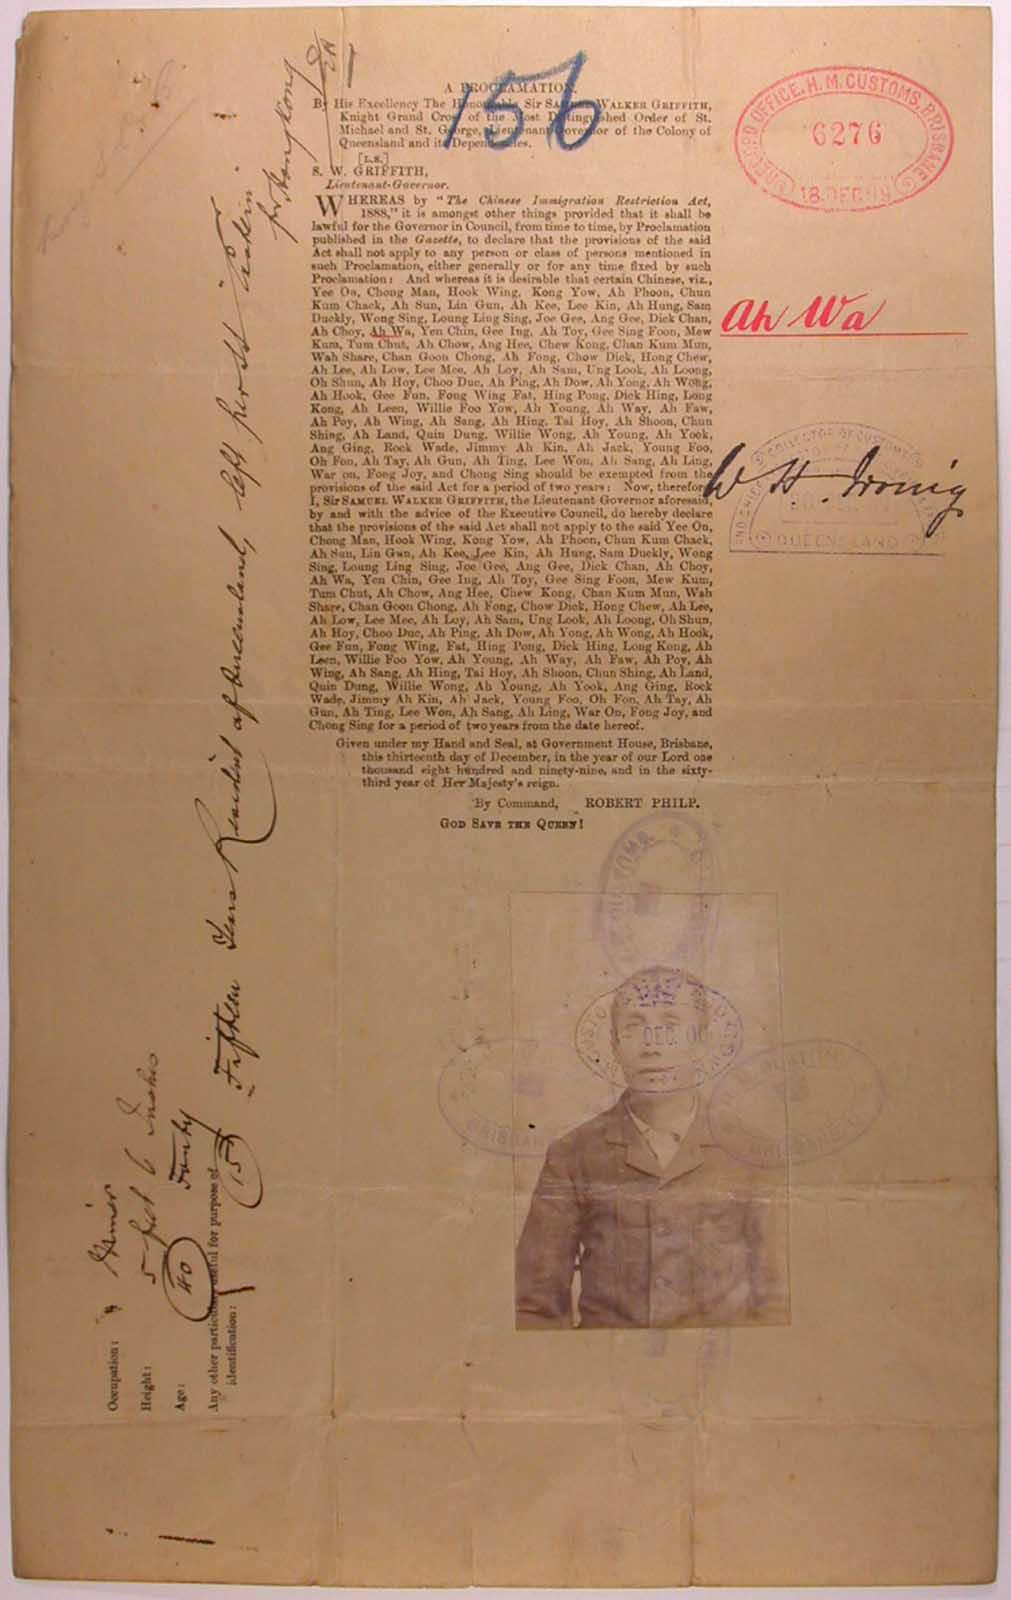 156
A PROCLAMATION.
By His Excellency The Honourable Sir SAMUEL WALKER GRIFFITH,
Knight Grand Cross of the Most Distinguished Order of St.
Michael and St. George, Lieutenant Governor of the Colony of
Queensland and its Dependencies.
[L.S.]
S. W. GRIFFITH,
Lieutenant-Governor.
WHEREAS by "The Chinese Immigration Restriction Act,
1888," it is amongst other things provided that it shall be
lawful for the Governor in Council, from time to time, by Proclamation
published in the Gazette, to declare that the provisions of the said
Act shall not apply to any person or class of persons mentioned in
such Proclamation, either generally or for any time fixed by such
Proclamation: And whereas it is desirable that certain Chinese, viz.,
Yee On, Chong Man, Hook Wing, Kong Yow, Ah Phoon, Chun
Kum Chack, Ah Sun, Lin Gun, Ah Kee, Lee Kin, Ah Hung, Sam
Duckly, Wong Sing, Loung Ling Sing, Joe Gee, Ang Gee, Dick Chan,
Ah Choy, Ah Wa, Yen Chin, Gee Ing, Ah Toy, Gee Sing Foon, Mew
Kum, Tum Chut, Ah Chow, Ang Hee, Chew Kong, Chan Kum Mun,
Wah Share, Chan Goon Chong, Ah Fong, Chow Dick, Hong Chew,
Ah Lee, Ah Low, Lee Mee, Ah Loy, Ah Sam, Ung Look, Ah Loong,
Oh Shun, Ah Hoy, Choo Duc, Ah Ping, Ah Dow, Ah Yong, Ah Wong,
Ah Hook, Gee Fun, Fong Wing Fat, Hing Pong, Dick Hing, Long
Kong, Ah Leen, Willie Foo Yow, Ah Young, Ah Way, Ah Faw,
Ah Poy, Ah Wing, Ah Sang, Ah Hing, Tai Hoy, Ah Shoon, Chun
Shing, Ah Land, Quin Dung, Willie Wong, Ah Young, Ah Yook,
Ang Ging, Rock Wade, Jimmy Ah Kin, Ah Jack, Young Foo,
Oh Fon, Ah Tay, Ah Gun, Ah Ting, Lee Won, Ah Sang, Ah Ling,
War on, Fong Joy, and Chong Sing should be exempted from the
provisions of the said Act for a period of two years: Now, therefore,
I, Sir SAMUEL WALKER GRIFFITH, the Lieutenant Governor aforesaid,
by and with the advice of the Executive Council, do hereby declare
that the provisions of the said Act shall not apply to the said Yee On,
Chong Man, Hook Wing, Kong Yow, Ah Phoon, Chun Kum Chack,
Ah Sun, Lin Gun, Ah Kee, Lee Kin, Ah Hung, Sam Duckly, Wong
Sing, Loung Ling Sing, Joe Gee, Ang Gee, Dick Chan, Ah Choy,
Ah Wa, Yen Chin, Gee Ing, Ah Toy, Gee Sing Foon, Mew Kum,
Tum Chut, Ah Chow, Ang Hee, Chew Kong, Chan Kum Mun, Wah
Share, Chan Goon Chong, Ah Fong, Chow Dick, Hong Chew, Ah Lee,
Ah Low, Lee Mee, Ah Loy, Ah Sam, Ung Look, Ah Loong, Oh Shun,
Ah Hoy, Choo Duc, Ah Ping, Ah Dow, Ah Yong, Ah Wong, Ah Hook,
Gee Fun, Fong Wing, Fat, Hing Pong, Dick Hing, Long Kong, Ah
Leen, Willie Foo Yow, Ah Young, Ah Way, Ah Faw, Ah Poy, Ah
Wing, Ah Sang, Ah Hing, Tai Hoy, Ah Shoon, Chun Shing, Ah Land,
Quin Dung, Willie Wong, Ah Young, Ah Yook, Ang Ging, Rock
Wade, Jimmy Ah Kin, Ah Jack, Young Foo, Oh Fon, Ah Tay, Ah
Gun, Ah Ting, Lee Won, Ah Sang, Ah Ling, War On, Fong Joy, and
Chong Sing for a period of two years from the date hereof.
Given under my Hand and Seal, at Government House, Brisbane,
this thirteenth day of December, in the year of our Lord one
thousand eight hundred and ninety-nine, and in the sixty-
third year of Her Majesty's reign.
By Command, ROBERT PHILP.
GOD SAVE THE QUEEN!
RECORD OFFICE, H. M. CUSTOMS, BRISBANE
6276
18 DEC 99
Ah Wa
W H Irving
COLLECTOR OF CUSTOMS
QUEENSLAND
DEC. 00
BRISBANE
BRISBANE
Occupation: Miner
Height: 5 feet 6 Inches
Age: 40 Forty
Any other particulars useful for purpose of
identification:
15 Fifteen Years Resident of Queensland, left per SS
for Hong Kong